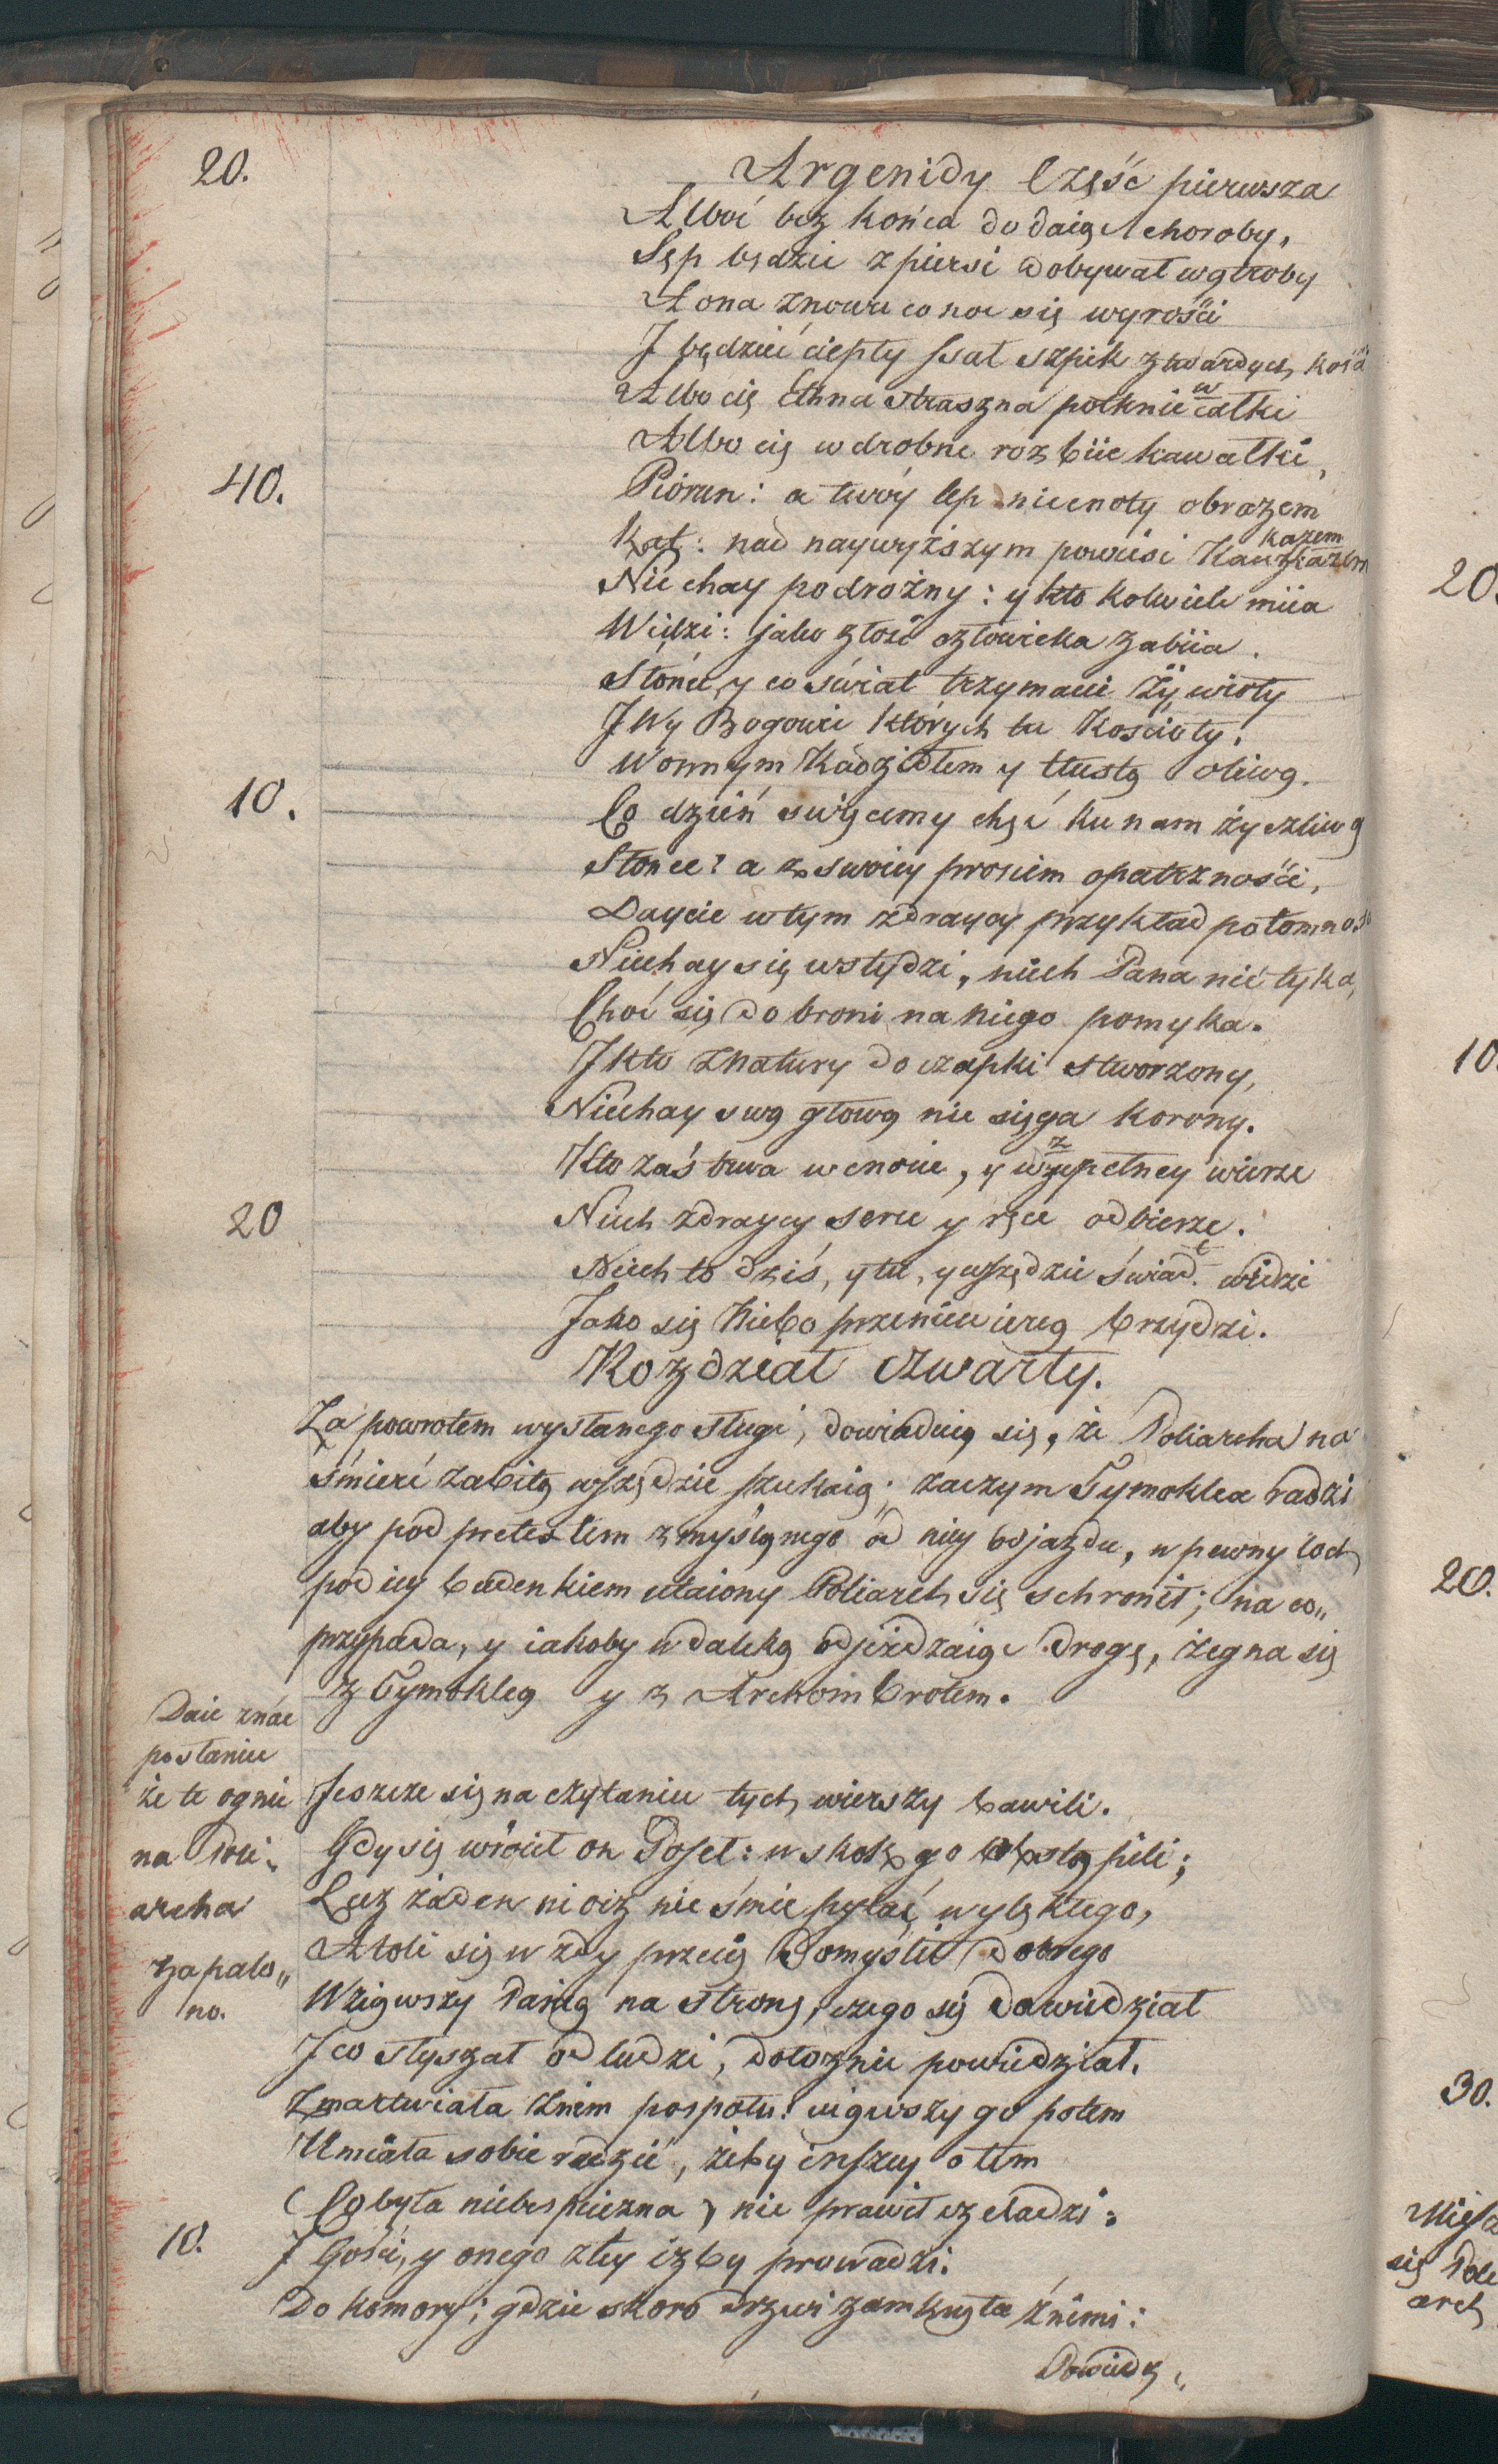 20.
Argenidy Część pierwsza
Alboć bez końca dodaiąc choroby,
Sęp będzie z piersi dobywał wątroby
A ona znowu co noc się wyrości
J będzieć ciepły ssał szpik z twardych kości
Albo cię Ethna straszna połknie w całki
Albo cię w drobne rozbiie kawałki,
40.
Piorun: a twóy łep niecnoty obrazem
Kat: nad naywyższym powiesi Kaukazem
Niechay podrożny: y kto kolwiek miia
Widzi: jako złość człowieka zabiia.
Słońce, y co świat trzymacie żywioły
J Wy Bogowie których tu Kościoły,
Wonnym Kadzidłem y tłustą oliwą.
10.
Co dzień święcemy chęć ku nam życzliwą
Słonce? a z swoiey prosiem opatrzności,
Daycie w tym zdraycy przykład potomno
Niechay się wstydzi, niech Pana nie tyka,
Choć się do broni na niego pomyka.
J kto z natury do czapki stworzony,
Niechay swą głową nie sięga korony.
Kto zaś trwa w cnocie, y w zupełney wierze
20
Niech zdraycy serce y ręce odbierze.
Niech to dziś, y tu, y wszędzie świat widzi
Jako się Niebo przeniewiereą brzydzi.
Rozdział czwarty.
Za powrotem wysłanego sługi, dowiaduią się, że Poliarcha na
śmierć zabitą wszędzie szukaią; zaczym Tymoklea radzi
aby pod pretextem zmyślonego od niey odjazdu, w pewny loch
pod iey budenkiem utaiony Poliarch się schronił; na co„
przypada, y iakoby w daleką odjeżdzaiąc drogę, żegna się
z Tymokleą y z Archombrotem.
Daie znać
posłaniec
że te ognie
na Poli„
archa
zapalo„
no.
Jeszcze się na czytaniu tych wierszy bawili.
Gdy się wrócił on Poseł: w skok go obstąpili;
Lecz żaden nic iż nie śmie pytać wylękłego,
Atoli się wżdy przecię domyślił dobrego
Wziąwszy Panią na stronę, czego się dowiedział
J co słyszał od ludzi, dołożnie powiedział.
Zmartwiała z nim pospołu: uiąwszy go potem
Umiała sobie radzić, żeby inszey o tem
(Co była niebespieczna) nie prawił czeladzi:
10.
J Gości, y onego z tey izby prowadzi.
Do komory; gdzie skoro drzwi zamknęła z niemi:
Dowiedz„
20.
10.
20.
30.
się Poli
arch